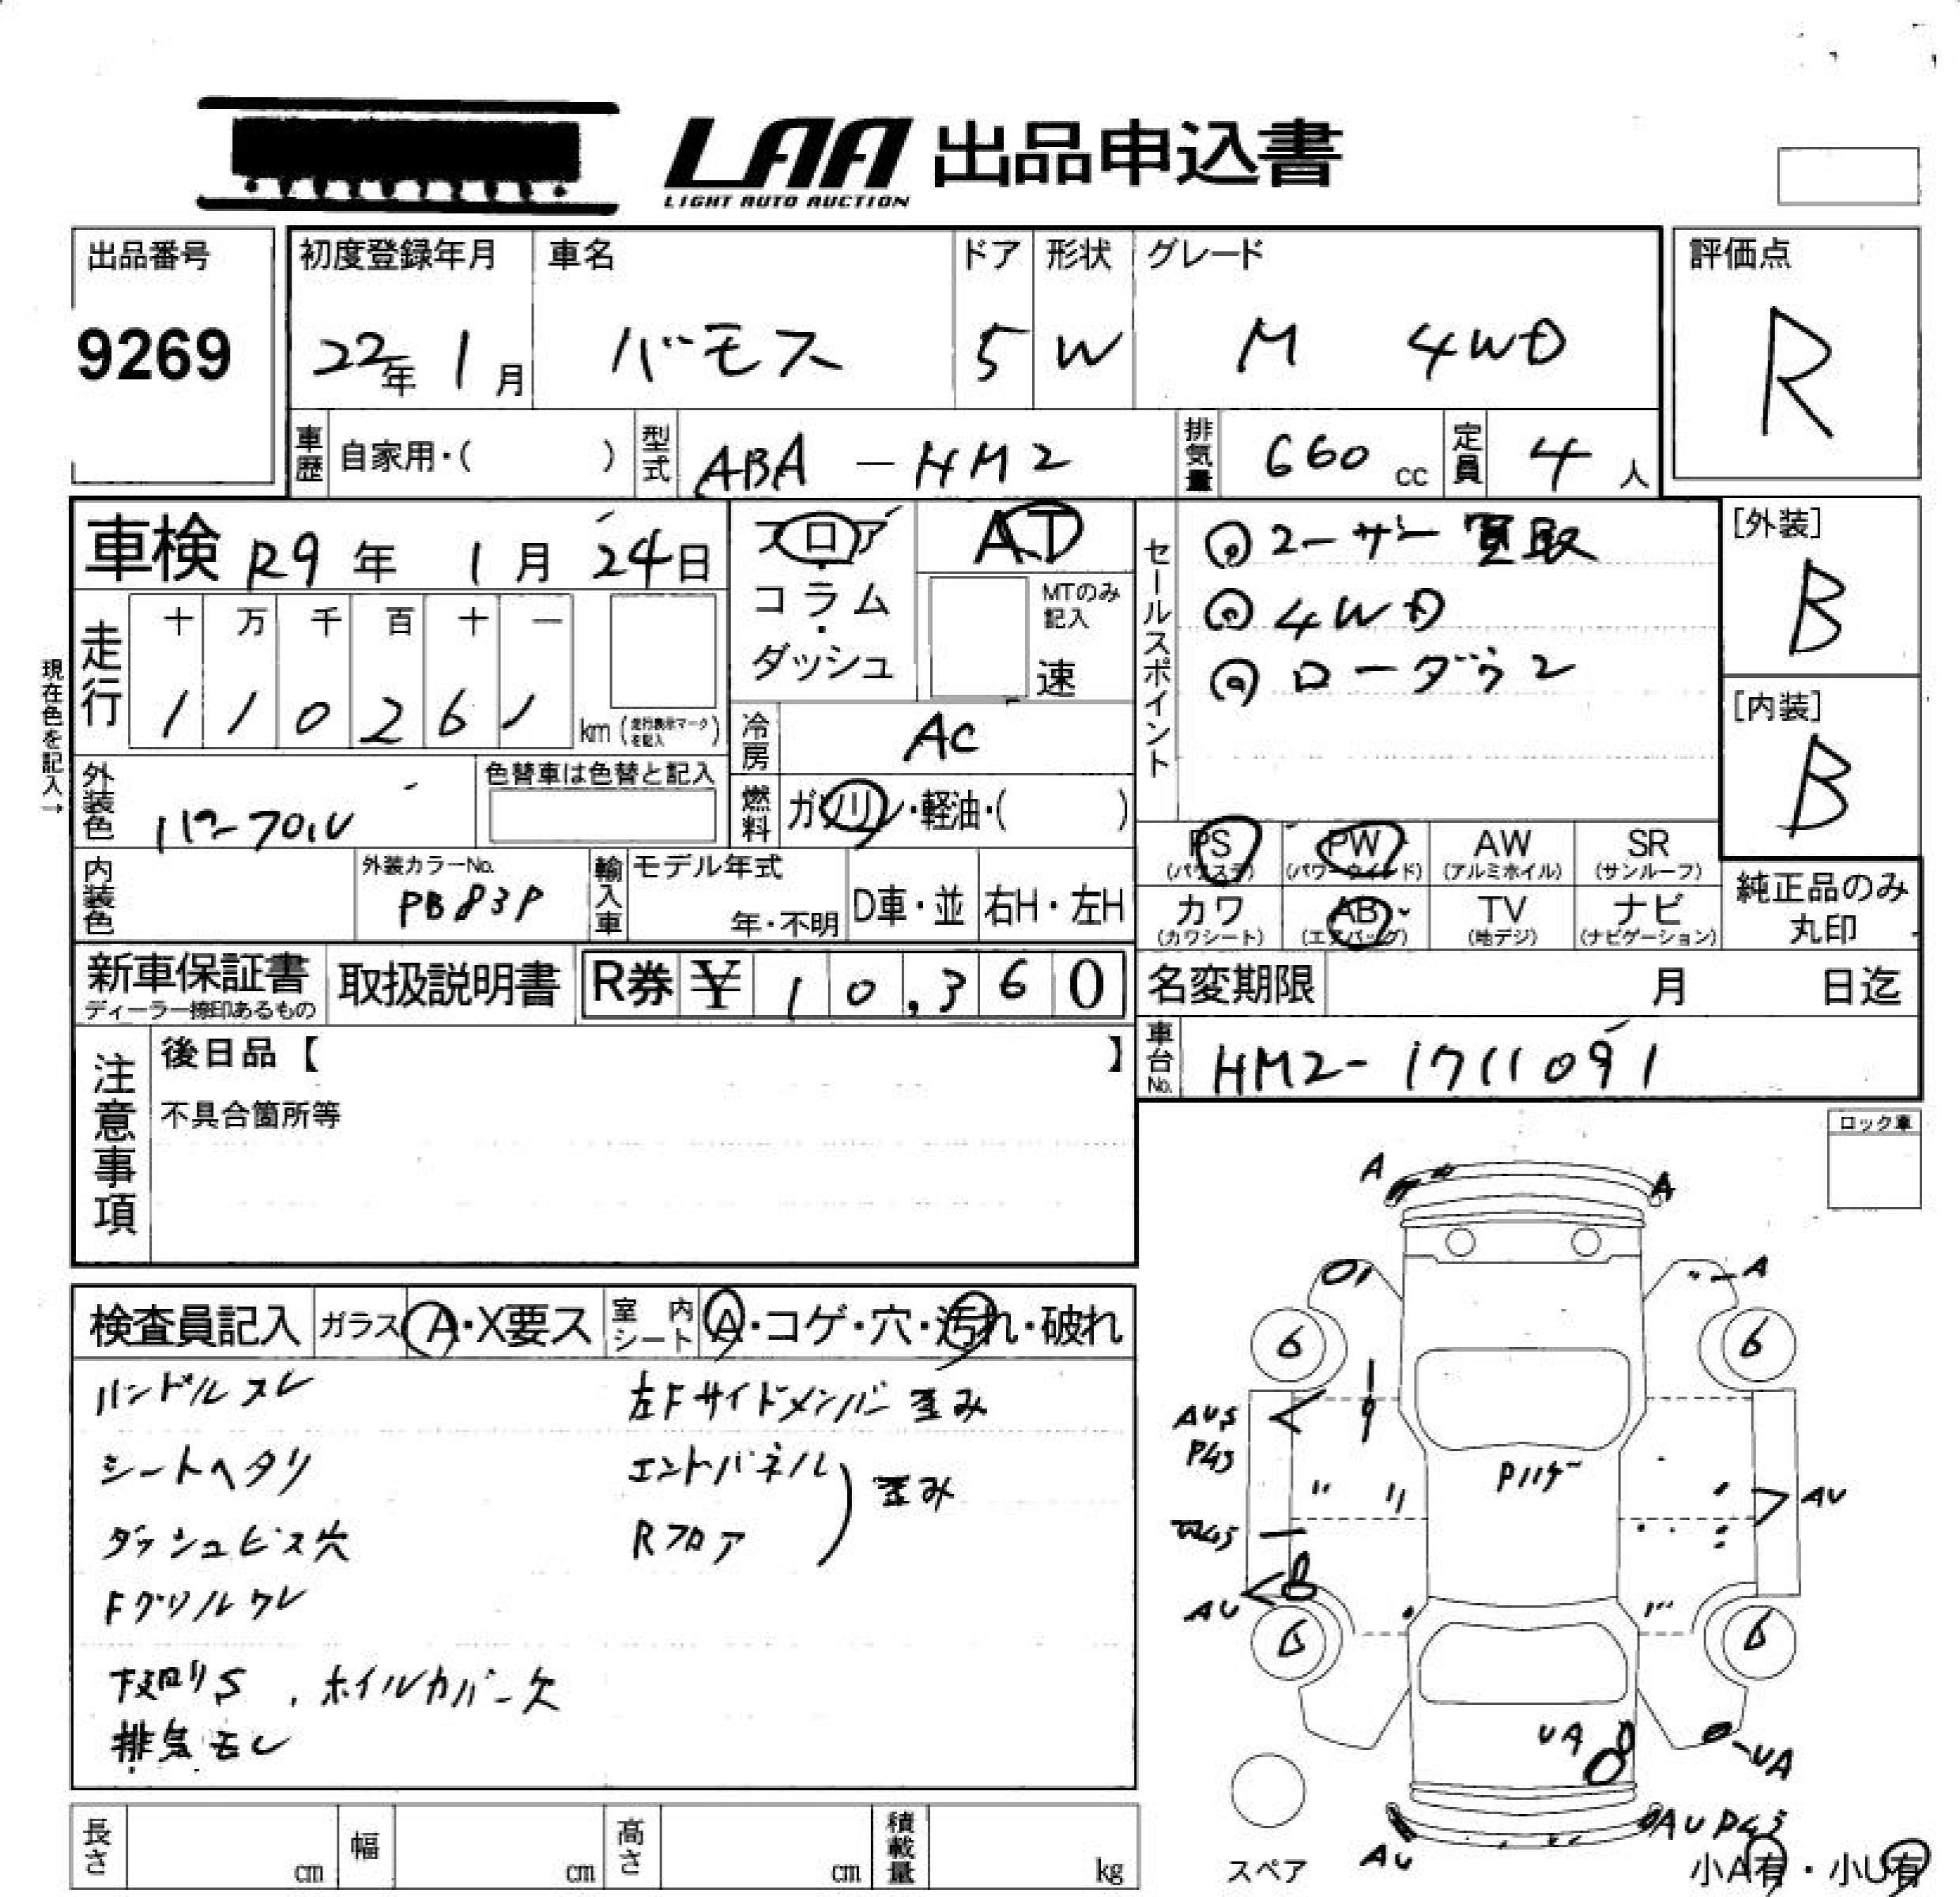 LAA 出品申込書
LIGHT AUTO AUCTION
出品番号
9269
初度登録年月
22年 1月
車名
バモス
ドア
5
形状
W
グレード
M 4WD
評価点
R
車歴 自家用・( )
型式 ABA-HM2
排気量 660 cc
定員 4 人
車検 R9年 1月 24日
フロア・コラム・ダッシュ
AT
MTのみ記入
速
セールスポイント
◎ユーザー買取
◎4WD
◎ローダウン
[外装]
B
[内装]
B
現在色を記入→
走行
十 万 千 百 十 一
1 1 0 2 6 1 km (走行表示マークを記入)
冷房 AC
外装色
色替車は色替と記入
燃料 ガソリン・軽油・( )
PS (パワステ)
PW (パワーウインド)
AW (アルミホイル)
SR (サンルーフ)
カワ (カワシート)
AB (エアバッグ)
TV (地デジ)
ナビ (ナビゲーション)
純正品のみ丸印
内装色
外装カラーNo.
PB83P
輸入車
モデル年式
年・不明
D車・並
右H・左H
新車保証書
ディーラー捺印あるもの
取扱説明書
R券 ¥ 10,360
名変期限 月 日迄
車台No. HM2-1711091
注意事項
後日品【 】
不具合箇所等
ロック車
検査員記入
ガラス A・X要ス
室内シート A・コゲ・穴・汚れ・破れ
ハンドルスレ
左Fサイドメンバー歪み
シートヘタリ
エンドパネル
Rフロア
歪み
ダッシュビス穴
Fグリルワレ
下廻りS、ホイルカバー欠
排気モレ
A
A
A
6
6
AUS
P45
Pハゲ
AU
W45
AU
6
6
UA
UA
AU P45
AU
スペア
小A有・小U有
長さ cm
幅 cm
高さ cm
積載量 kg